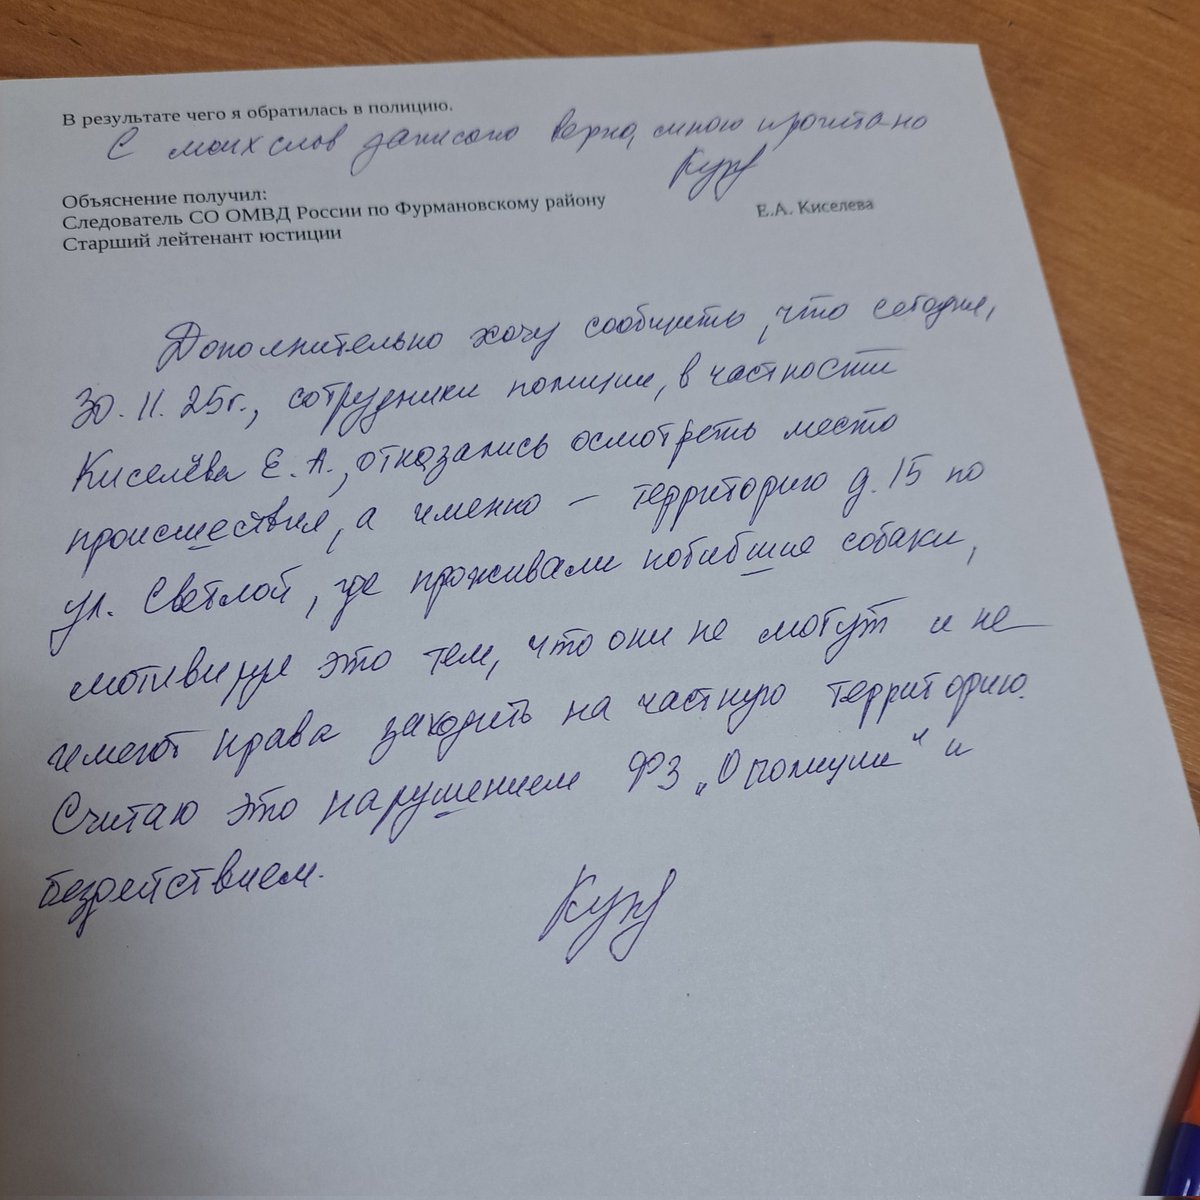 В результате чего я обратилась в полицию.
С моих слов записано верно, мною прочитано
Объяснение получил:
Следователь СО ОМВД России по Фурмановскому району
Е.А. Киселева
Старший лейтенант юстиции
Дополнительно хочу сообщить, что сегодня,
30.11.25г., сотрудники полиции, в частности
Киселёва Е.А., отказались осмотреть место
происшествия, а именно – территорию д.15 по
ул. Светлой, где проживали погибшие собаки,
мотивируя это тем, что они не могут и не
имеют права заходить на частную территорию.
Считаю это нарушением ФЗ „О полиции" и
бездействием.